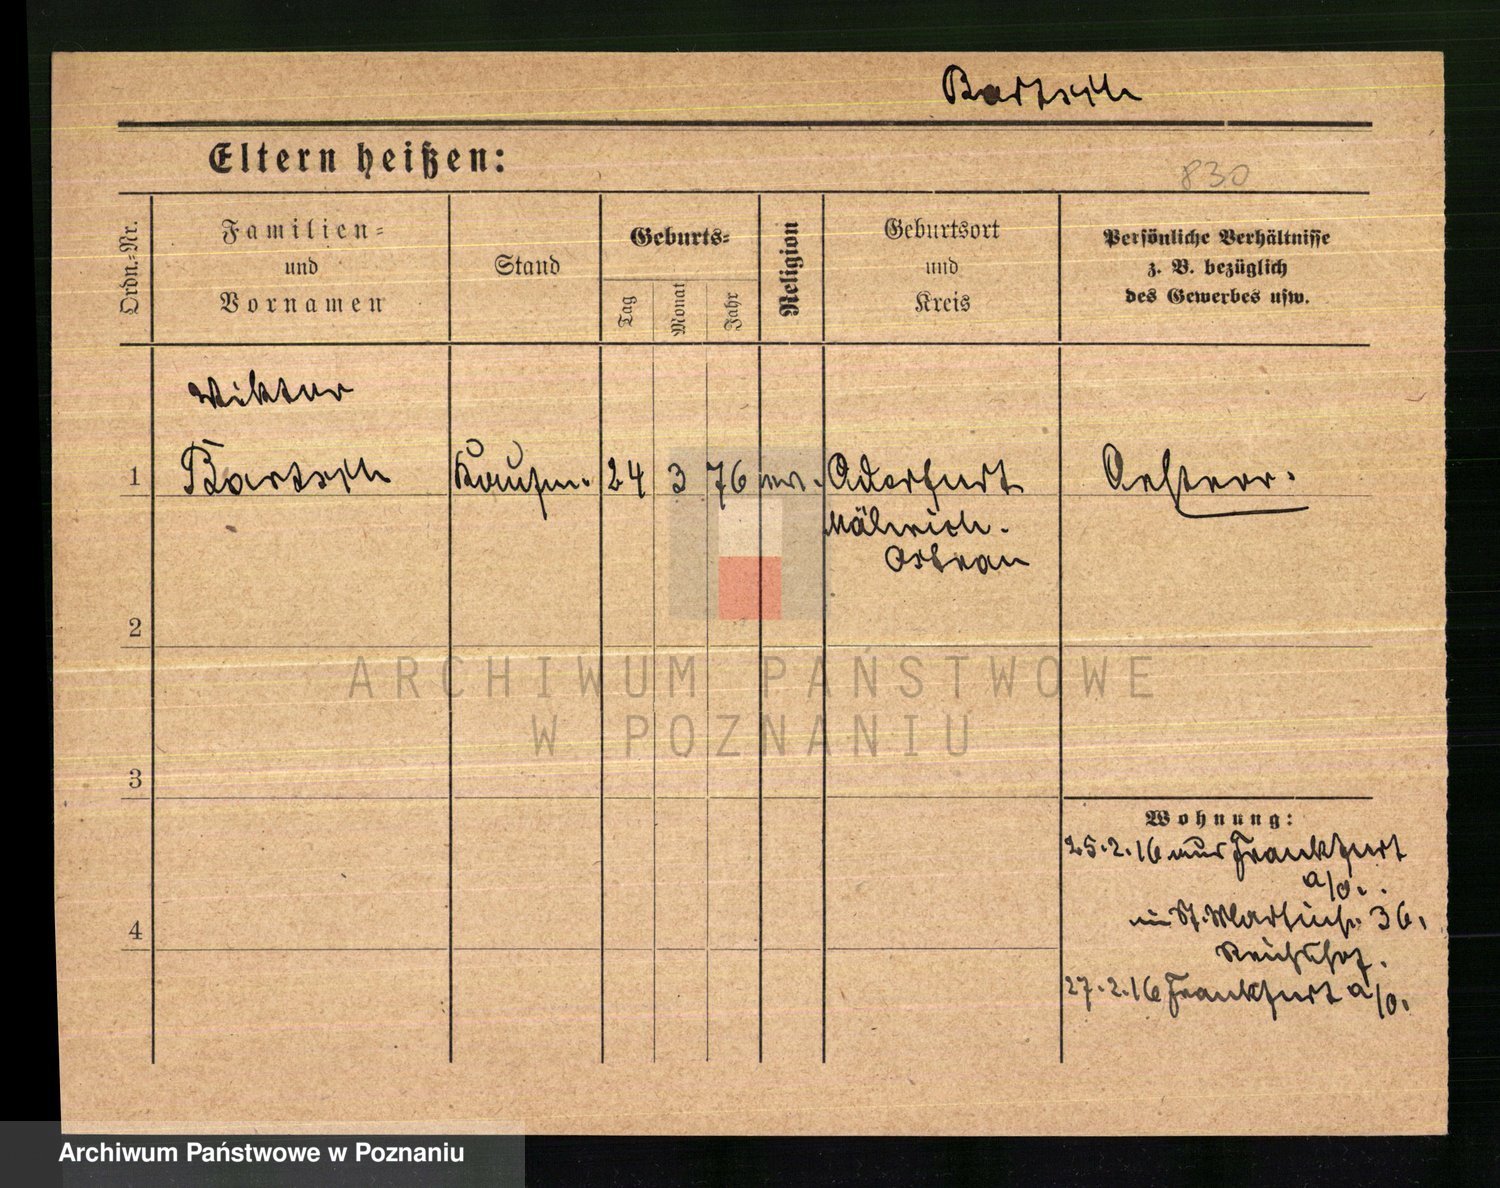 Bartsch
Eltern heißen:
830
Ordn.-Nr.
Familien-
und
Vornamen
Stand
Geburts-
Tag
Monat
Jahr
Religion
Geburtsort
und
Kreis
Persönliche Verhältnisse
z. B. bezüglich
des Gewerbes usw.
Viktor
1 Bartsch Kaufm. 24 3 76 Oderfurt Oesterr.
Mährisch.
Ostrau
2
ARCHIWUM PAŃSTWOWE
W POZNANIU
3
Wohnung:
25.2.16 aus Frankfurt
a/O.
4
St. Martinstr. 36.
Reichshof.
27.2.16 Frankfurt a/O.
Archiwum Państwowe w Poznaniu